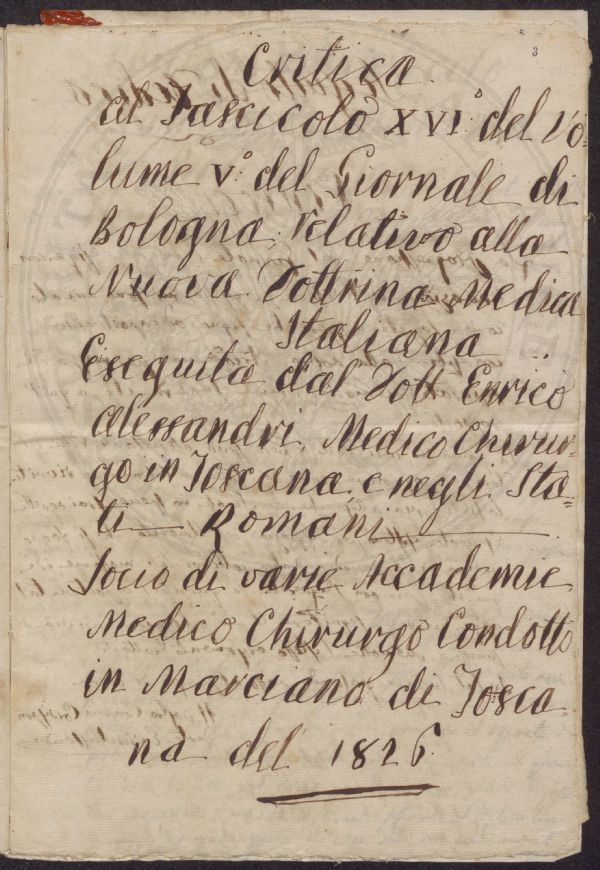 3
Critica
al Fascicolo XVI° del Vo-
lume V° del Giornale di
Bologna relativo alla
Nuova Dottrina Medica
Italiana
Eseguita dal Dott Enrico
Alessandri Medico Chirur-
go in Toscana, e negli Sta-
ti Romani
Socio di varie Accademie
Medico Chirurgo Condotto
in Marciano di Tosca-
na del 1826